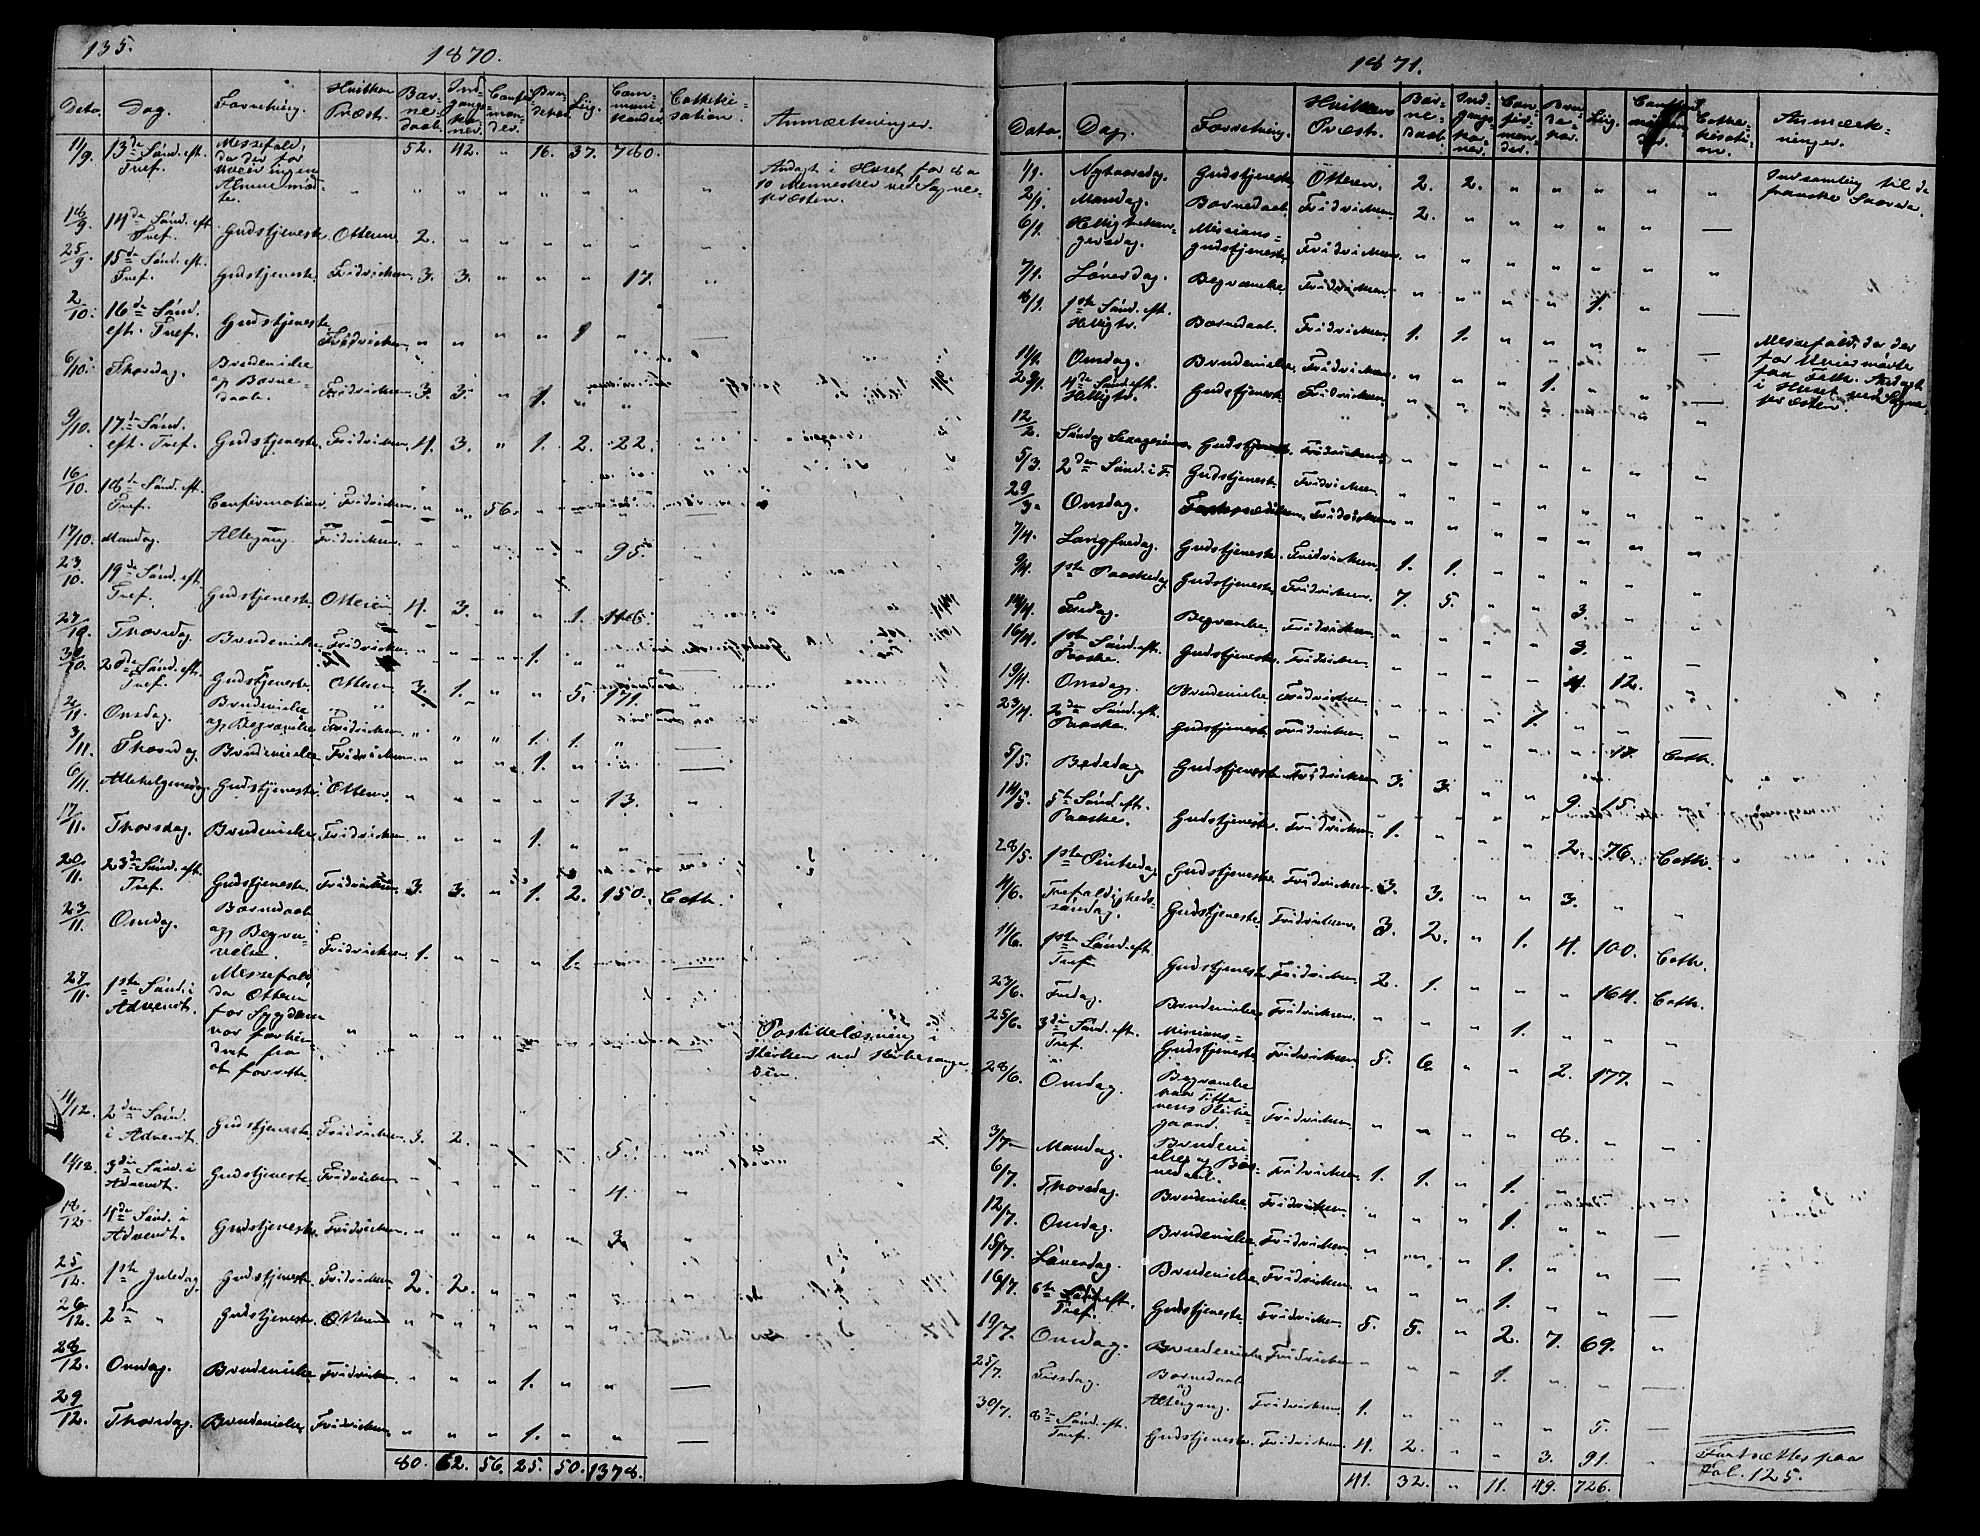 135.
1870.
Dato. Dag. Forretning. Hvilken Præst. Barnedaab. Indgangskoner. Confirmander. Brudepar. Liig. Communikanter. Cathekisation. Anmærkninger.
52. 42. " 16. 37. 760.
11/9. 13de Sönd. eft. Tref. Messefald, da der for Uveir ingen Almue mødte. " " " " " " " Andagt i Huset for 8 a 10 Mennesker ved Sognepræsten.
18/9 14de Sönd. eft. Tref. Gudstjeneste Otteren 2. " " " " " "
25/9 15de Sönd. eft. Tref. Gudstjeneste Fridrichsen 3. 3. " " " 17. "
2/10. 16de Sönd. eft. Tref. Gudstjeneste Fridrichsen " " " " 1 " —
6/10. Thorsdag. Brudevielse og Barnedaab. Fridrichsen 3. 3. " 1. " "
9/10. 17de Sönd. eft. Tref. Gudstjeneste Fridrichsen 4. 3. " 1. 2. 22. "
16/10. 18de Sönd. eft. Tref. Confirmation Fridrichsen " " 56. " " "
17/10. Mandag. Altergang Fridrichsen " " " " " 95
23/10. 19de Sönd. eft. Tref. Gudstjeneste Otteren 4. 3. " " 1. 116.
27/10. Thorsdag Brudevielse Fridrichsen " " " 1. " "
30/10. 20de Sönd. eft. Tref. Gudstjeneste Otteren 3. 1. " " 5. 171.
2/11. Onsdag. Brudevielse og Begravelse Fridrichsen " " " 1. 1. " —
3/11. Thorsdag Brudevielse Fridrichsen " " " 1. " " —
6/11. Allehelgensdag Gudstjeneste Otteren " " " " " 13. "
17/11. Thorsdag. Brudevielse Fridrichsen " " " 1. " "
20/11. 23de Sönd. eft. Tref. Gudstjeneste Fridrichsen 3. 3. " 1. 2. 150. Cath.
23/11. Onsdag. Barnedaab og Begravelse Fridrichsen 1. " " " 1. " —
27/11. 1ste Sönd. i Advendt. Messefald, da Otteren for Sygdom var forhindret fra at forrette " " " " " Postillelæsning i Kirken ved Kirkesangeren.
4/12. 2den Sönd. i Advendt. Gudstjeneste Fridrichsen 3. 2. " " " 5.
11/12. 3die Sönd. i Advendt. Gudstjeneste Fridrichsen " " " " " 4. "
18/12. 4de Sönd. i Advendt. Gudstjeneste Fridrichsen " " " " " 3. "
25/12. 1ste Juledag Gudstjeneste Fridrichsen 2. 2. " " " "
26/12. 2de " Gudstjeneste Otteren " " " " " "
28/12. Onsdag. Brudevielse Fridrichsen " " " 1. " " —
29/12. Thorsdag. Brudevielse Fridrichsen " " " 1. " " —
80. 62. 56. 25. 50. 1378.
1871.
Dato. Dag. Forretning. Hvilken Præst. Barnedaab. Indgangskoner. Confirmander. Brudepar. Liig. Cathekisation. Anmærkninger.
1/1. Nytaarsdag. Gudstjeneste Otteren. 2. 2. " " " " " Indsamling til de franske Saarede.
2/1. Mandag. Barnedaab. Fridrichsen 2. " " " " " —
6/1. Helligtrekongersdag. Missionsgudstjeneste Fridrichsen " " " " " " "
7/1. Löverdag. Begravelse. Fridrichsen " " " " 1. " —
8/1. 1ste Sönd. eft. Helligtr. Barnedaab. Fridrichsen 1. 1. " " " " — Messefald, da der for Uveir mødte faa Folk. Andagt i Huset ved Sognepræsten.
11/1. Onsdag. Brudevielse. Fridrichsen " " " 1. " " —
29/1. 4de Sönd. eft. Helligtr. Gudstjeneste Fridrichsen " " " " " " "
12/2. Söndag Sexagesima Gudstjeneste Fridrichsen " " " " " " "
5/3. 2den Sönd. i F. Gudstjeneste Fridrichsen " " " " " " "
29/3. Onsdag. Fasteprædiken. Fridrichsen " " " " " " "
7/4. Langfredag. Gudstjeneste. Fridrichsen 1. 1. " " " " "
9/4. 1ste Paaskedag Gudstjeneste Fridrichsen 7. 5. " " 3. " "
14/4. Fredag. Begravelse. Fridrichsen " " " " 3. " —
16/4. 1ste Sönd. eft. Paaske. Gudstjeneste Fridrichsen " " " " 4. 12. "
19/4. Onsdag. Brudevielse Fridrichsen " " " 1. " " —
23/4. 2de Sönd. eft. Paaske. Gudstjeneste Fridrichsen " " " " " 17. Cath.
5/5. Bededag. Gudstjeneste Fridrichsen 3. 3. " " 9. 15. "
14/5. 5te Sönd. eft. Paaske. Gudstjeneste. Fridrichsen 1. " " " 2. 76. Cath.
28/5. 1ste Pintsedag Gudstjeneste Fridrichsen 3. 3. " " 3. " "
4/6. Trefoldighedssöndag. Gudstjeneste Fridrichsen 3. 2. " 1. 4. 100. Cath.
11/6. 1ste Sönd. eft. Tref. Gudstjeneste Fridrichsen. 2. 1. " " " 164. Cath.
23/6. Fredag. Brudevielse Fridrichsen. " " " 1. " " —
25/6. 3die Sönd. eft. Tref. Missions-Gudstjeneste Fridrichsen 5. 6. " " 2. 177. "
28/6. Onsdag. Begravelse paa Kirkegaard. Fridrichsen " " " " 8. " —
3/7. Mandag. Brudevielse og Barnedaab. Fridrichsen 1. 1. " 1. " "
6/7. Thorsdag. Brudevielse Fridrichsen " " " 1. " " —
12/7. Onsdag. Brudevielse Fridrichsen " " " 1. " " —
15/7. Löverdag. Brudevielse Fridrichsen " " " 1. " " —
16/7. 6te Sönd. eft. Tref. Gudstjeneste Fridrichsen 5. 5. " 2. 7. 69. "
19/7. Onsdag. Brudevielse Fridrichsen " " " 1. " " —
25/7. Tirsdag. Barnedaab og Altergang. Fridrichsen 1. " " " " 5. —
30/7. 8de Sönd. eft. Tref. Gudstjeneste. Fridrichsen 4. 2. " " 3. 91. "
41. 32. " 11. 49. 726.
Fortsættes paa Fol. 125.